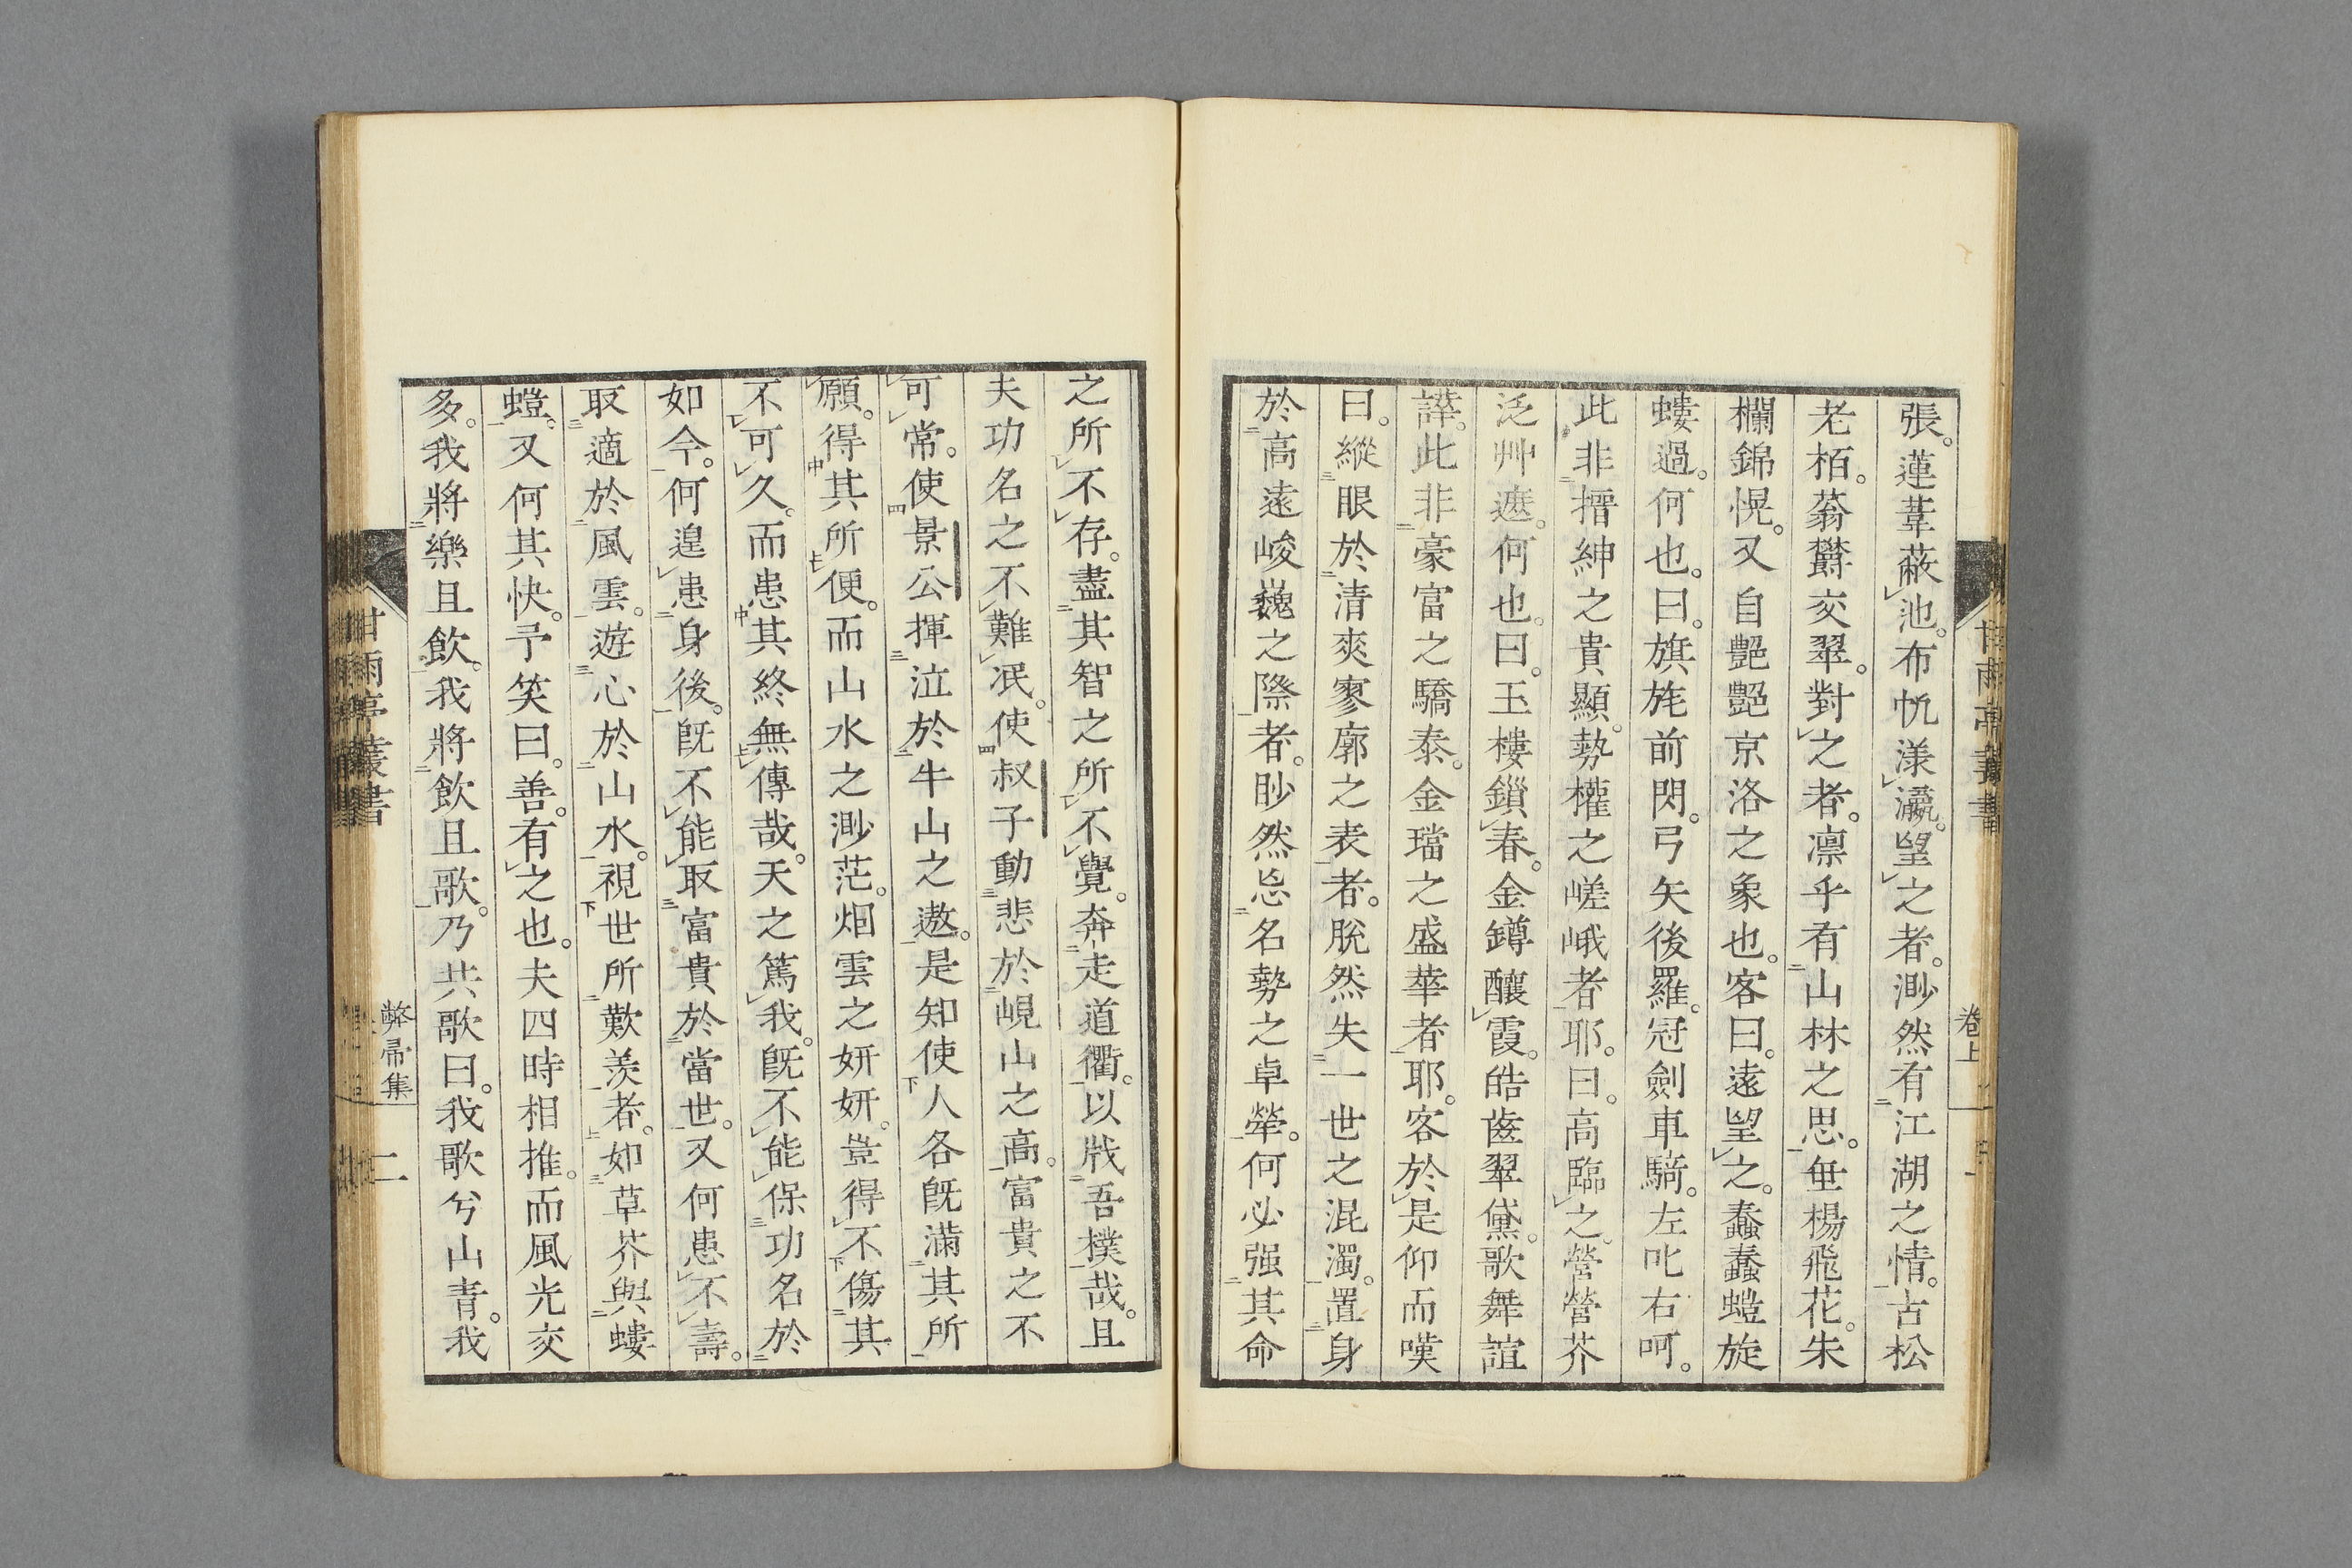 張。蓮葦蔽池。布帆漾瀛。望之者。渺然有江湖之情。古松
老栢。蓊欝交翠。對之者。凛乎有山林之思。垂楊飛花。朱
欄錦幌。又自艶艶京洛之象也。客曰。遠望之。蠢蠢螘旋
螻過。何也。曰。旗旄前閃。弓矢後羅。冠劍車騎。左叱右呵。
此非搢紳之貴顯。勢權之嵯峨者耶。曰。高臨之。營營芥
泛艸遊。何也。曰。玉樓鎖春。金罇釀霞。皓齒翠黛。歌舞諠
譁。此非豪富之驕泰。金璫之盛華者耶。客於是仰而嘆
曰。縱眼於清爽寥廓之表者。脫然失一世之混濁。置身
於高遠峻巍之際者。眇然忘名勢之卓犖。何必强其命
之所不存。盡其智之所不覺。奔走道衢。以戕吾樸哉。且
夫功名之不難泯。使叔子動悲於峴山之高。富貴之不
可常。使景公揮泣於牛山之遨。是知使人各既滿其所
願。得其所便。而山水之渺茫。烟雲之妍妍。豈得不傷其
不可久。而患其終無傳哉。天之篤我。既不能保功名於
如今。何遑患身後。既不能取富貴於當世。又何患不壽。
取適於風雲。遊心於山水。視世所歎羨者。如草芥與螻
螘。又何其快。予笑曰。善。有之也。夫四時相推。而風光交
多。我將樂且飲。我將飲且歌。乃共歌曰。我歌兮山青。我
甘雨亭叢書
卷上
弊帚集
二